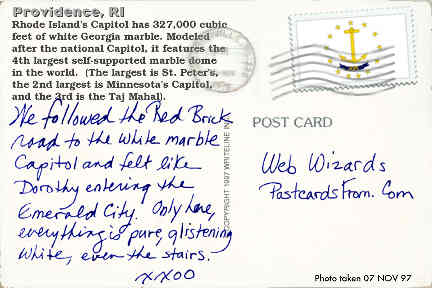 Providence, RI
Rhode Island's Capitol has 327,000 cubic
feet of white Georgia marble. Modeled
after the national Capitol, it features the
4th largest self-supported marble dome
in the world. (The largest is St. Peter's,
the 2nd largest is Minnesota's Capitol,
and the 3rd is the Taj Mahal).
We followed the Red Brick
road to the white marble
Capitol and felt like
Dorothy entering the
Emerald City. Only here,
everything is pure, glistening
white, even the stairs.
xxoo
COPYRIGHT 1997 WHITELINE IN
POST CARD
Web Wizards
PostcardsFrom.Com
Photo taken 07 NOV 97